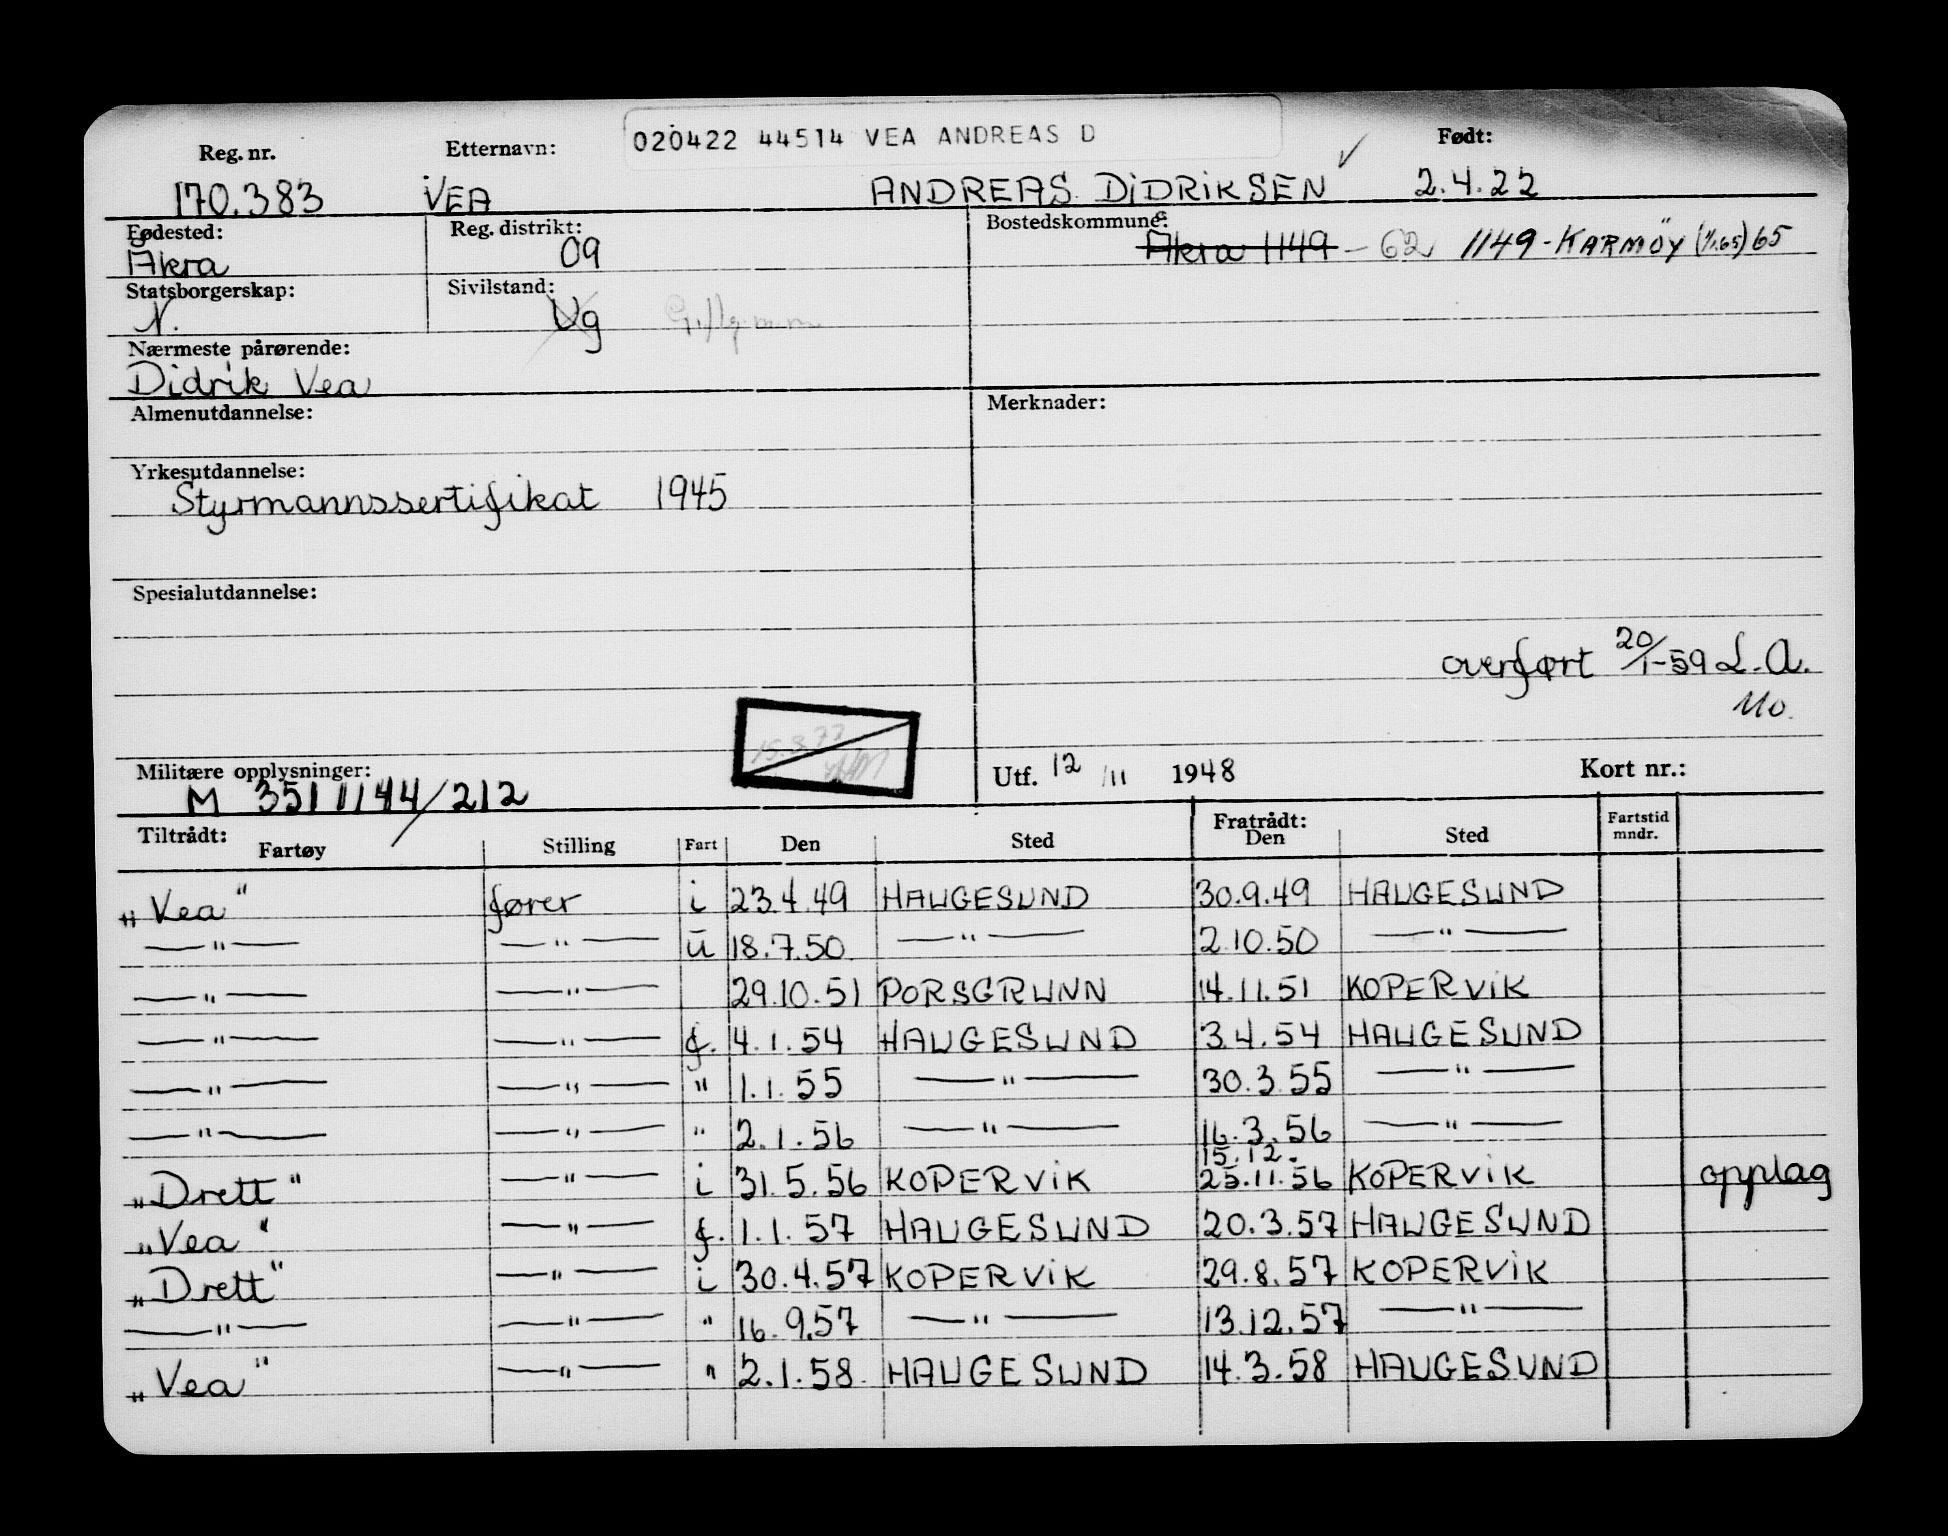 020422 44514 VEA ANDREAS D
Reg. nr. Etternavn: Født:
170.383 VEA ANDREAS DIDRIKSEN ✓ 2.4.22
Fødested: Reg. distrikt: Bostedskommune:
Åkra 09 Åkra 1149 - 62 1149 - KARMÖY (1/1.65) 65
Statsborgerskap: Sivilstand:
N. Ug
Nærmeste pårørende:
Didrik Vea
Almenutdannelse: Merknader:
Yrkesutdannelse:
Styrmannssertifikat 1945
Spesialutdannelse:
overført 20/1-59 L.A.
Mo.
15.3.77
Militære opplysninger: Utf. 12/11 1948 Kort nr.:
M 3511144/212
Tiltrådt: Fratrådt:
Fartøy Stilling Fart Den Sted Den Sted Fartstid mndr.
„Vea" fører i 23.4.49 HAUGESUND 30.9.49 HAUGESUND
—"— —"— ū 18.7.50 —"— 2.10.50 —"—
—"— —"— 29.10.51 PORSGRUNN 14.11.51 KOPERVIK
—"— —"— f. 4.1.54 HAUGESUND 3.4.54 HAUGESUND
—"— —"— " 1.1.55 —"— 30.3.55 —"—
—"— —"— " 2.1.56 —"— 16.3.56 —"—
15.12.
„Drett" —"— i 31.5.56 KOPERVIK 25.11.56 KOPERVIK opplag
„Vea" —"— f. 1.1.57 HAUGESUND 20.3.57 HAUGESUND
„Drett" —"— i 30.4.57 KOPERVIK 29.8.57 KOPERVIK
—"— —"— " 16.9.57 —"— 13.12.57 —"—
„Vea" —"— " 2.1.58 HAUGESUND 14.3.58 HAUGESUND